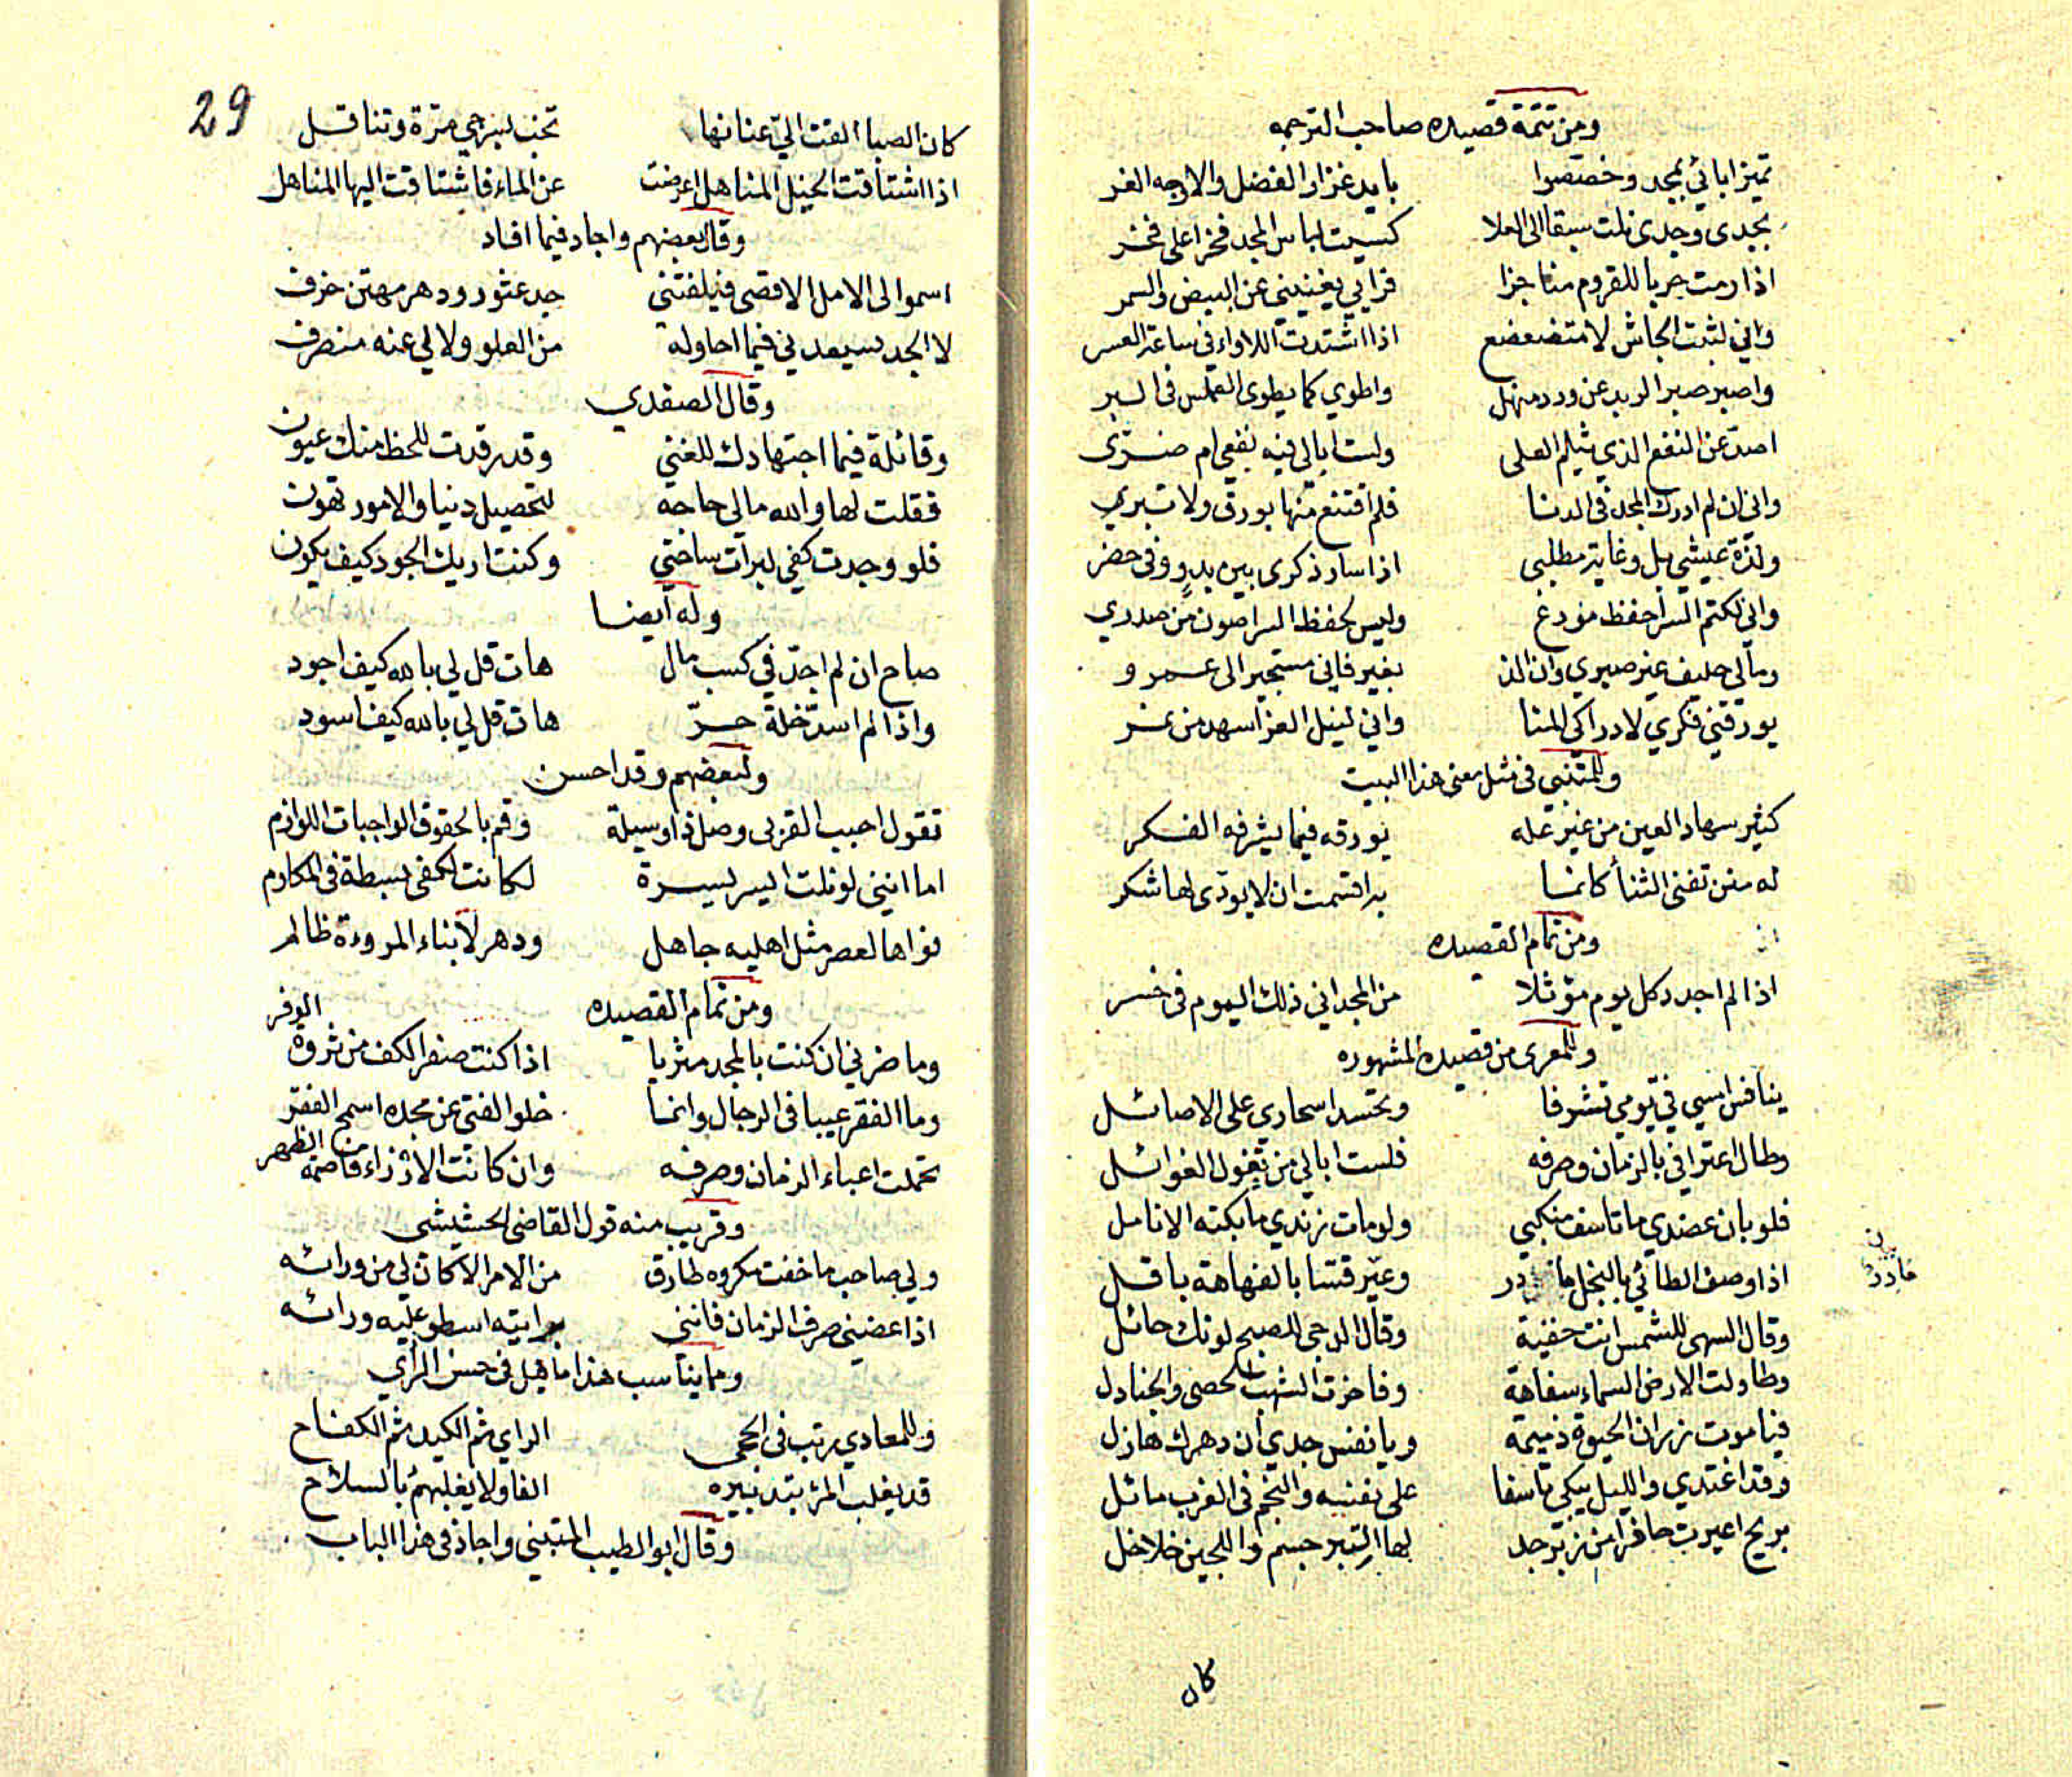 ومن تتمة قصيده صاحب الترجمه
تميز ابائي بمجد وخصصوا بايد غزار الفضل والاوجه الغر
بجدى وجدى نلت سبقا الى العلا كسيت لباس المجد فخرا على فخر
اذا رمت حربا للقروم مناجزا فرايي يغنيني عن البيض والسمر
واني لثبت الجاش لا متضعضع اذا اشتدت اللاواء في ساعة العسر
واصبر صبر الربد عن ورد منهل واطوي كما يطوى العملس في السبر
اصد عن النفع الذي يثلم العلى ولست ابالي فيه نفعي ام ضرى
واني ان لم ادرك المجد في الدنا فلم اقتنع منها بورق ولا تبري
ولذة عيشي بل وغاية مطلبي اذا سار ذكرى بين بدو وفي حضر
واني لكتم السر احفظ مودع وليس لحفظ السر اصون من صدري
ومالي حليف غير صبري وان الذ بغير فاني مستجير الى عمرو
يورقني فكري لادراكي المنا واني لنيل العز اسهد من نسر
وللمتنبي في مثل معنى هذا البيت
كثير سهاد العين من غير عله يورقه فيما يشرفه الفكر
له منن تفنى الثنأ كانما به اقسمت ان لا يودى لها شكر
ومن تمام القصيده
اذا لم اجدد كل يوم موثلا من المجد اني ذلك اليوم في خسر
وللمعرى من قصيده المشهوره
ينافس امسي في يومي تشرفا وتحسد اسحارى على الاصائل
وطال اعترافي بالزمان وصرفه فلست ابالي من تغول الغوائل
فلو بان عضدي ما تاسف منكبي ولو مات زندي ما بكته الانامل
اذا وصف الطائي بالبخل مادر وعير قسا بالفهاهة باقل
مادر
وقال السهى للشمس انت خفية وقال الدجى للصبح لونك حائل
وطاولت الارض السماء سفاهة وفاخرت الشهب الحصى والجنادل
فيا موت زر ان الحيوة ذميمة ويا نفس جدي ان دهرك هازل
وقد اغتدي والليل يبكي تاسفا على نفسه والنجم في الغرب مائل
بريح اعيرت حافرا من زبرجد لها التبر جسم واللجين خلاخل
كان
29
كان الصبا القت الي عنانها تخب بسرجي مرة وتناقل
اذا اشتاقت الخيل المناهل اعرضت عن الماء فاشتاقت اليها المناهل
وقال بعضهم واجاد فيما افاد
اسموا لى الامل الاقصى فيلفتني جد عثور ودهر مهتن خرف
لا الجد يسعدني فيما احاوله من العلو ولا لي عنه منصرف
وقال الصفدي
وقائلة فيما اجتهادك للغنى وقد رقدت للحظ منك عيون
فقلت لها والله مالي حاجة لتحصيل دنيا والامور تهون
فلو وجدت كفي لبرات ساحتي وكنت اريك الجود كيف يكون
وله أيضا
صاح ان لم اجد في كسب مال هات قل لي بالله كيف اجود
واذا لم اسد خلة حر هات قل لي بالله كيف اسود
ولبعضهم وقد احسن
تقول احبب القربى وصل ذا وسيلة وقم بالحقوق الواجبات اللوازم
اما انني لو نلت ايسر يسرة لكانت لكفي بسطة في المكارم
فواها لعصر مثل اهليه جاهل ودهر لابناء المروءة ظالم
ومن تمام القصيده
وما ضرني ان كنت بالمجد مثريا اذا كنت صفر الكف من ثروة الوفر
وما الفقر عيبا في الرجال وانما خلو الفتى عن مجده اسمج الفقر
تحملت اعباء الزمان وصرفه وان كانت الارزاء قاصمة الظهر
وقريب منه قول القاضي الحشيشى
ولي صاحب ما خفت مكروه طارق من الامر الا كان لي من ورائه
اذا عضني صرف الزمان فانني برايته اسطو عليه ورائه
ومما يناسب هذا ما قيل في حسن الرأي
وللمعادي رتب في الحجى الراي ثم الكيد ثم الكفاح
قد يغلب المرء بتدبيره الفا ولا يغلبهم بالسلاح
وقال ابو الطيب المتبني واجاد في هذا الباب